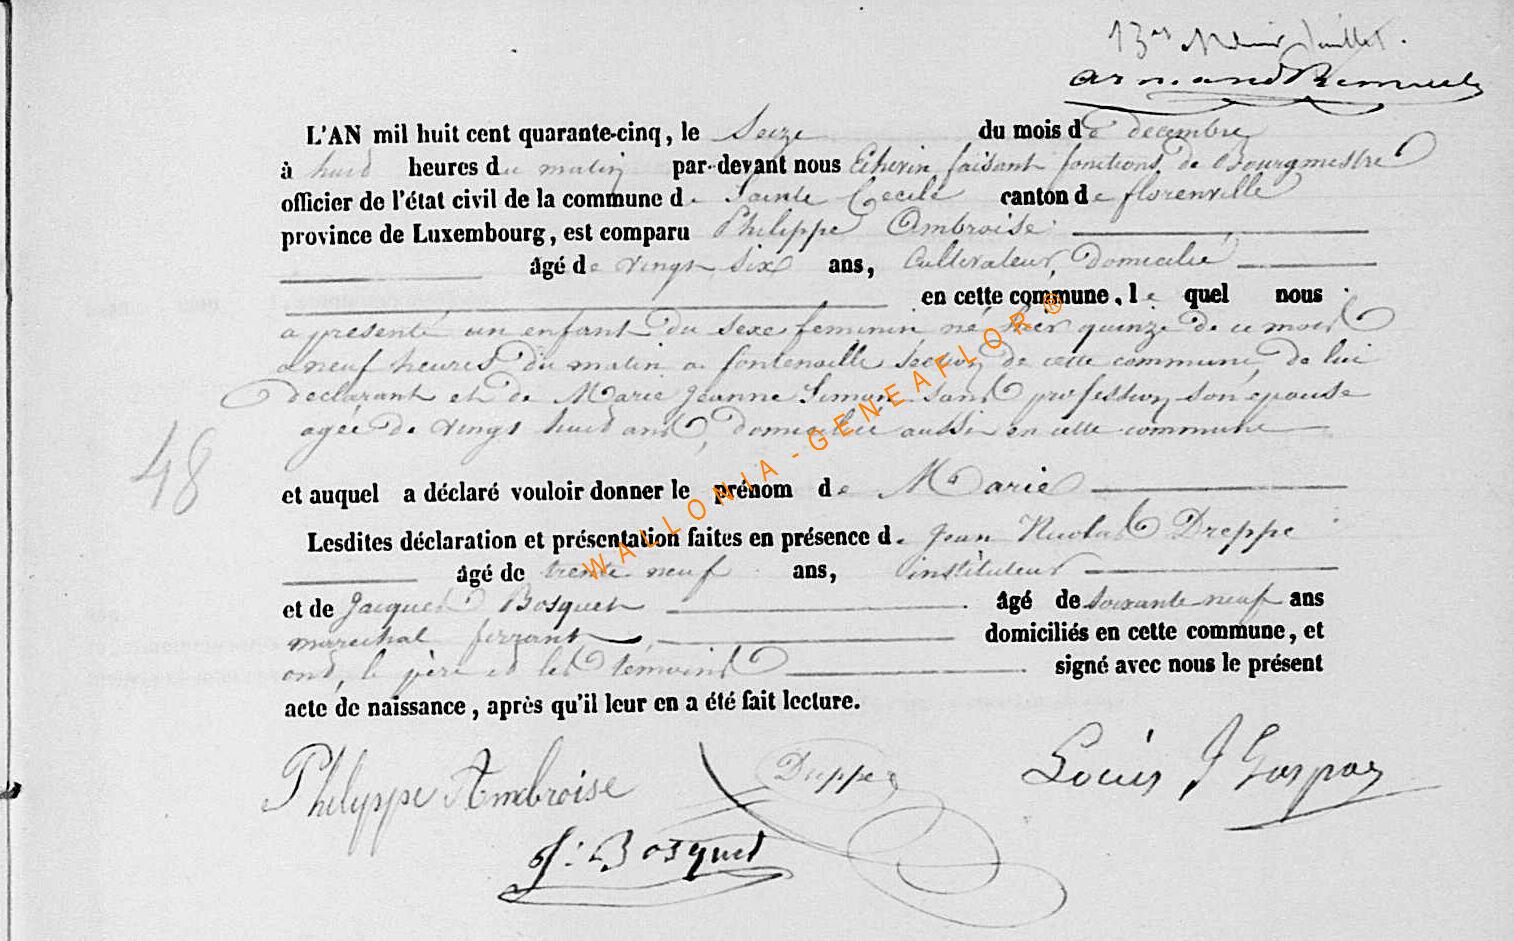 13es
armand
L'AN mil huit cent quarante-cinq, le Seize du mois de decembre
à huit heures du matin par-devant nous Echevin faisant fonctions de Bourgmestre
officier de l'état civil de la commune de Sainte Cecile canton de florenville
province de Luxembourg, est comparu Philippe Ambroise
âgé de vingt six ans, Cultivateur, Domicilié
en cette commune, le quel nous
a presenté un enfant du sexe feminin né hier quinze de ce mois
a neuf heures du matin a fontenoille section de cette commune, de lui
declarant et de Marie Jeanne Simon sans profession son epouse
agée de vingt huit ans, domiciliée aussi en cette commune
48
et auquel a déclaré vouloir donner le prénom de Marie
Lesdites déclaration et présentation faites en présence de Jean Nicolas Dreppe
âgé de trente neuf ans, instituteur
et de Jacques Bosquet âgé de soixante neuf ans
marechal ferrant, domiciliés en cette commune, et
ont, le père et les temoins signé avec nous le présent
acte de naissance, après qu'il leur en a été fait lecture.
Philippe Ambroise Dreppe Louis J Gaspar
J: Bosquet
WALLONIA - GENEAFLOR ®